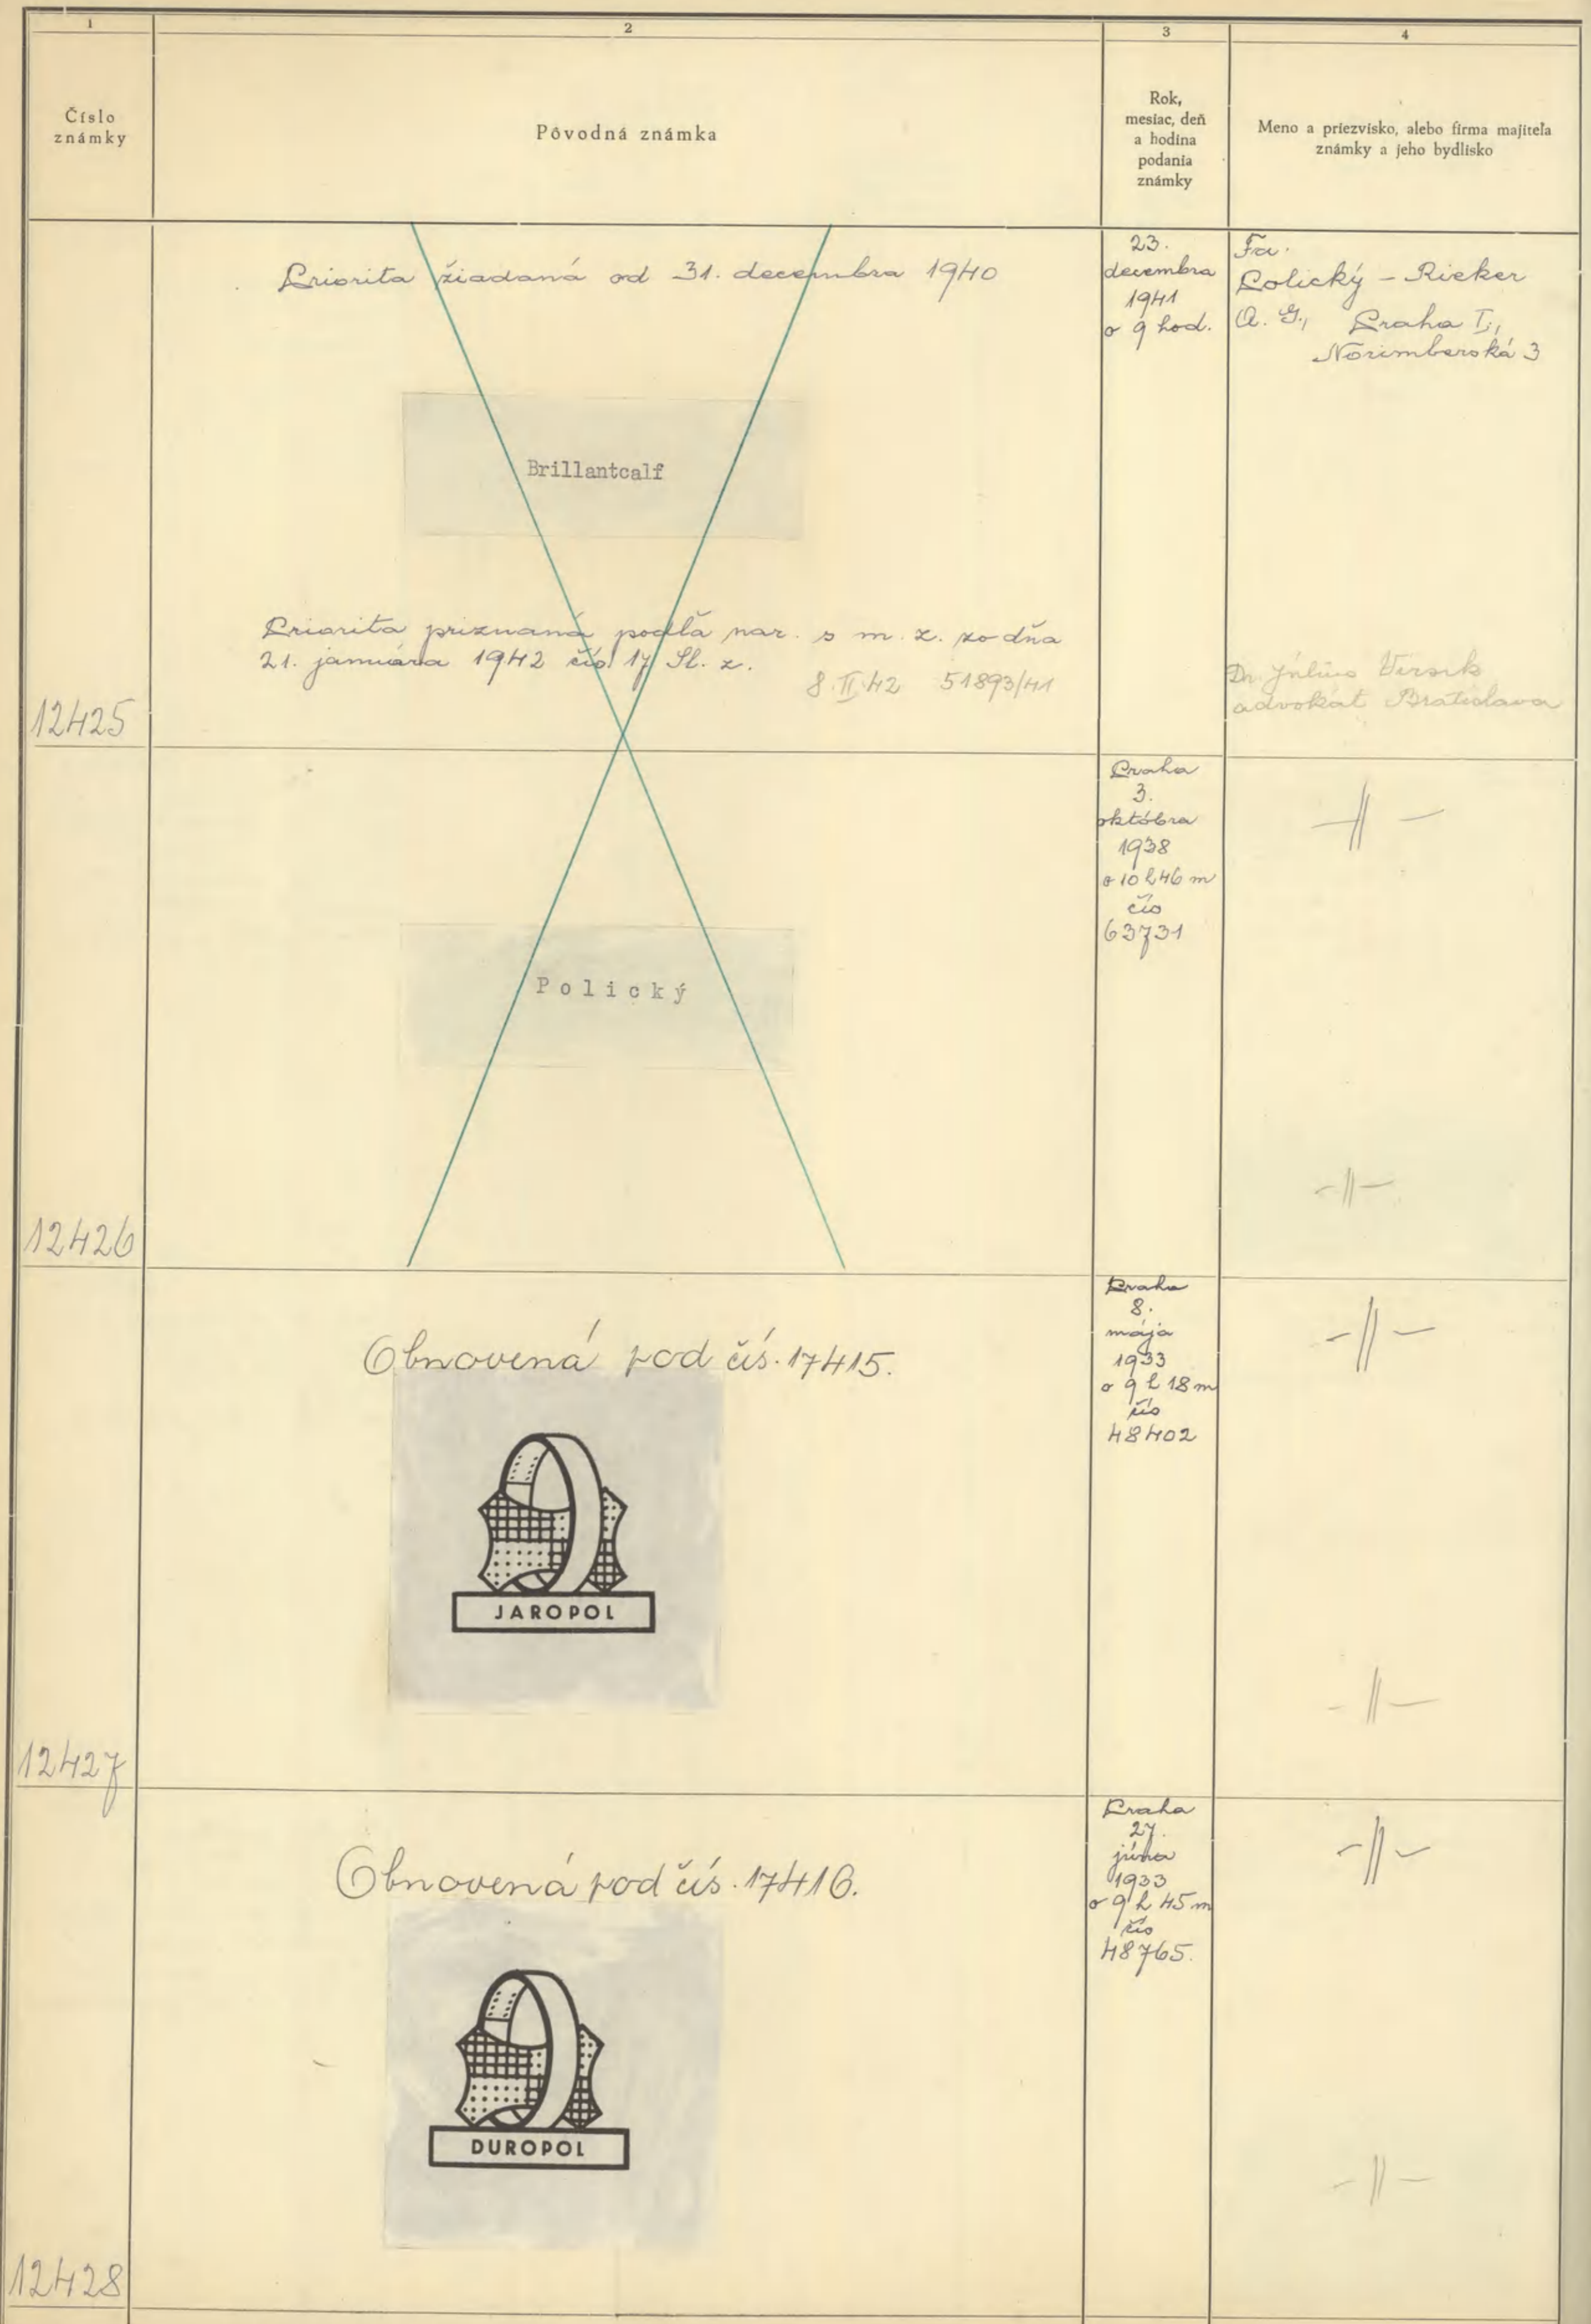 1
2
3
4
Číslo
známky
Pôvodná známka
Rok,
mesiac, deň
a hodina
podania
známky
Meno a priezvisko, alebo firma majiteľa
známky a jeho bydlisko
12425
Priorita žiadaná od 31. decembra 1940
Brillantcalf
Priorita priznaná podľa nar. s m. z. zo dňa
21. januára 1942 čís. 17 Sl. z.
8.II.42 51893/41
23.
decembra
1941
o 9 hod.
Fa.
Polický - Rieker
A. G., Praha I.,
Norimberská 3
Dr. Július
advokát Bratislava
12426
Polický
Praha
3.
októbra
1938
o 10 h 46 m
čís
63731
-||-
-||-
12427
Obnovená pod čís. 17415.
JAROPOL
Praha
8.
mája
1933
o 9 h 18 m
čís
48402
-||-
-||-
12428
Obnovená pod čís. 17416.
DUROPOL
Praha
27.
júna
1933
o 9 h 45 m
čís
48765.
-||-
-||-